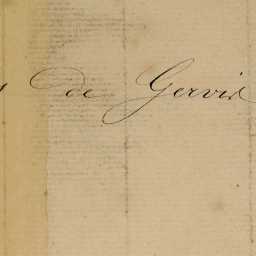 de Gervis